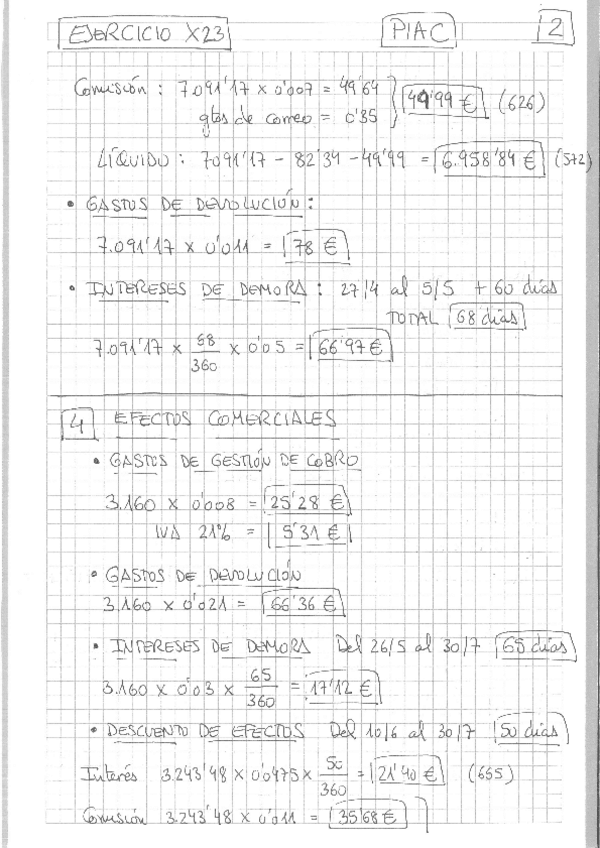 EJERCICIO X23 PIAC 2
Comisión : 7.091'17 x 0'007 = 49'64
gtos de correo = 0'35 49'99 € (626)
LÍQUIDO : 7091'17 - 82'34 - 49'99 = 6.958'84 € (572)
• GASTOS DE DEVOLUCIÓN :
7.091'17 x 0'011 = 78 €
• INTERESES DE DEMORA : 27/4 al 5/5 + 60 días
TOTAL 68 días
7.091'17 x 68/360 x 0'05 = 66'97 €
4 EFECTOS COMERCIALES
• GASTOS DE GESTIÓN DE COBRO
3.160 x 0'008 = 25'28 €
IVA 21% = 5'31 €
• GASTOS DE DEVOLUCIÓN
3.160 x 0'021 = 66'36 €
• INTERESES DE DEMORA Del 26/5 al 30/7 65 días
3.160 x 0'03 x 65/360 = 17'12 €
• DESCUENTO DE EFECTOS Del 10/6 al 30/7 50 días
Interés 3.243'48 x 0'0475 x 50/360 = 21'40 € (665)
Comisión 3.243'48 x 0'011 = 35'68 €